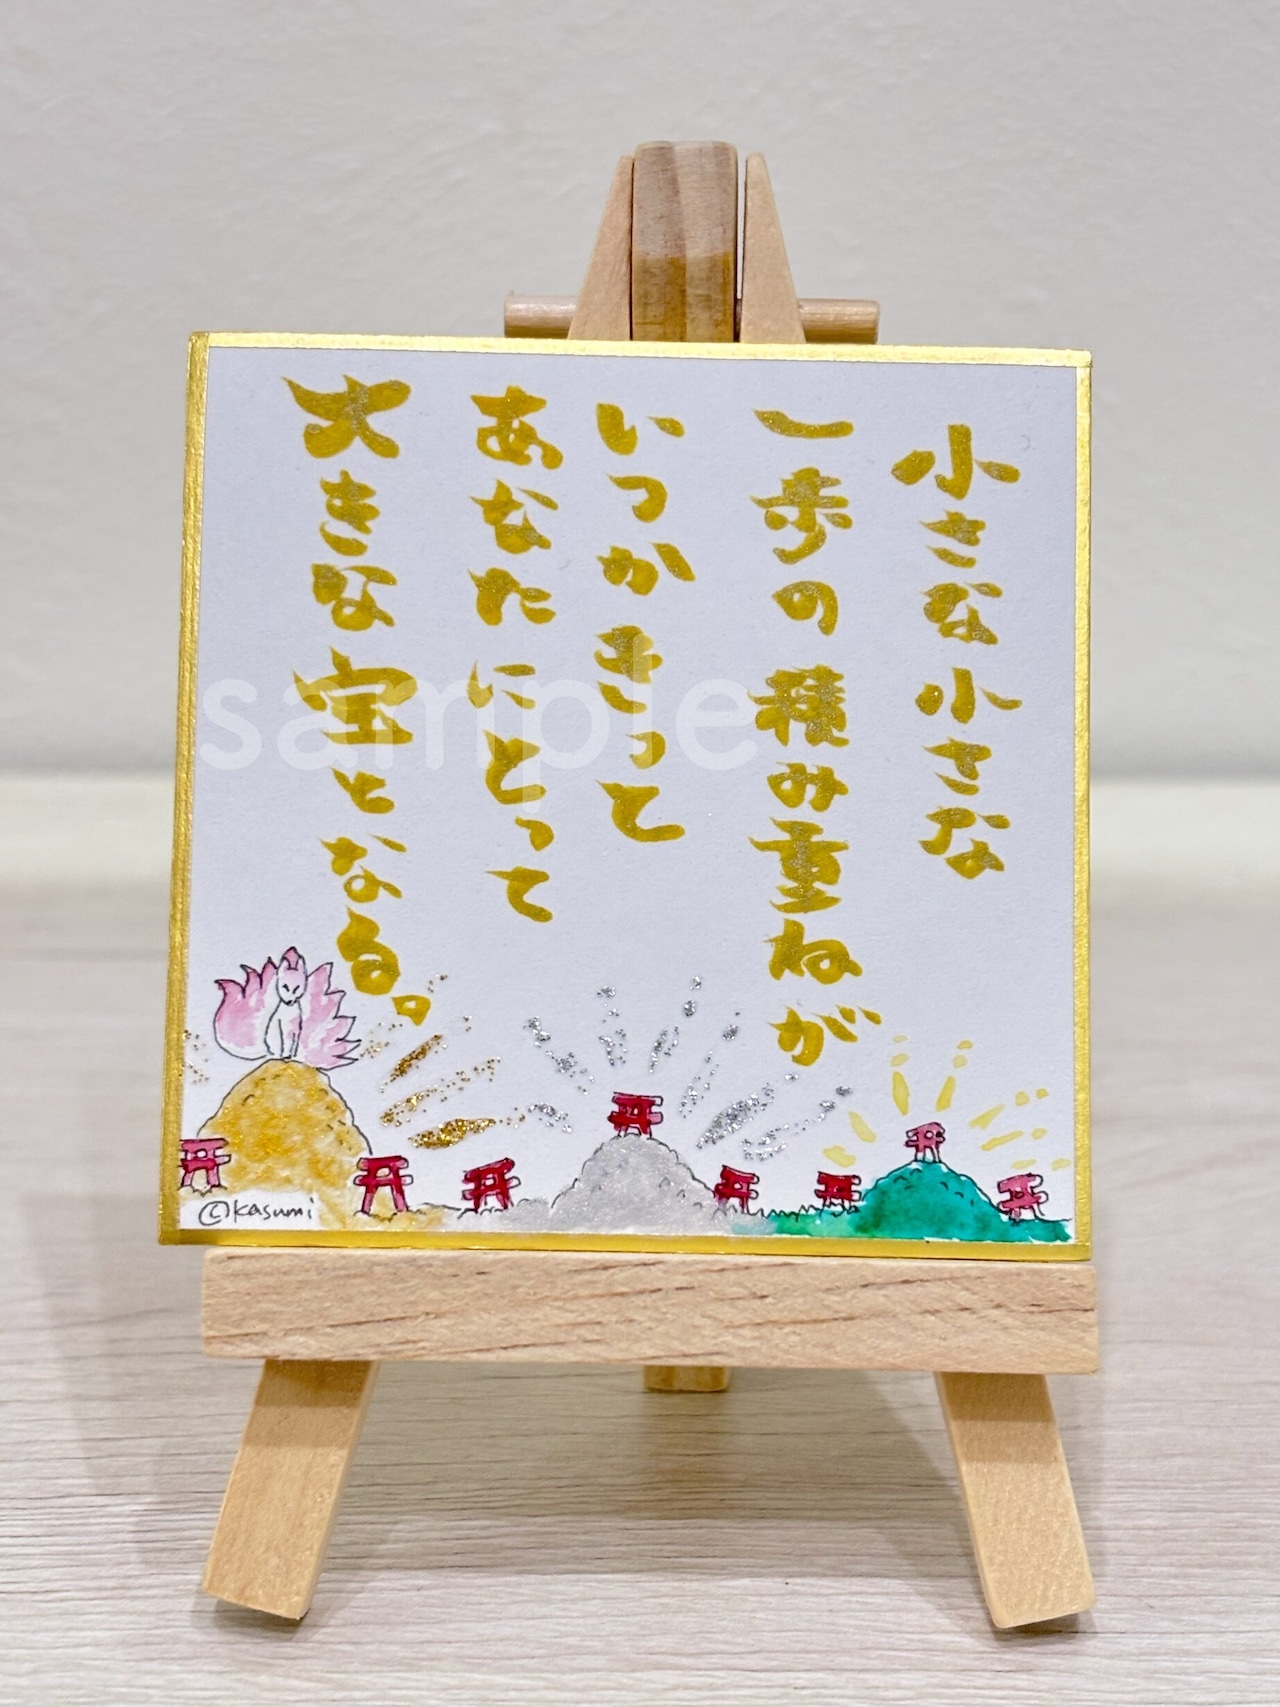 小さな小さな
一歩の積み重ねが
いつかきって
あなたにとって
大きな宝となる。
©kasumi
sample